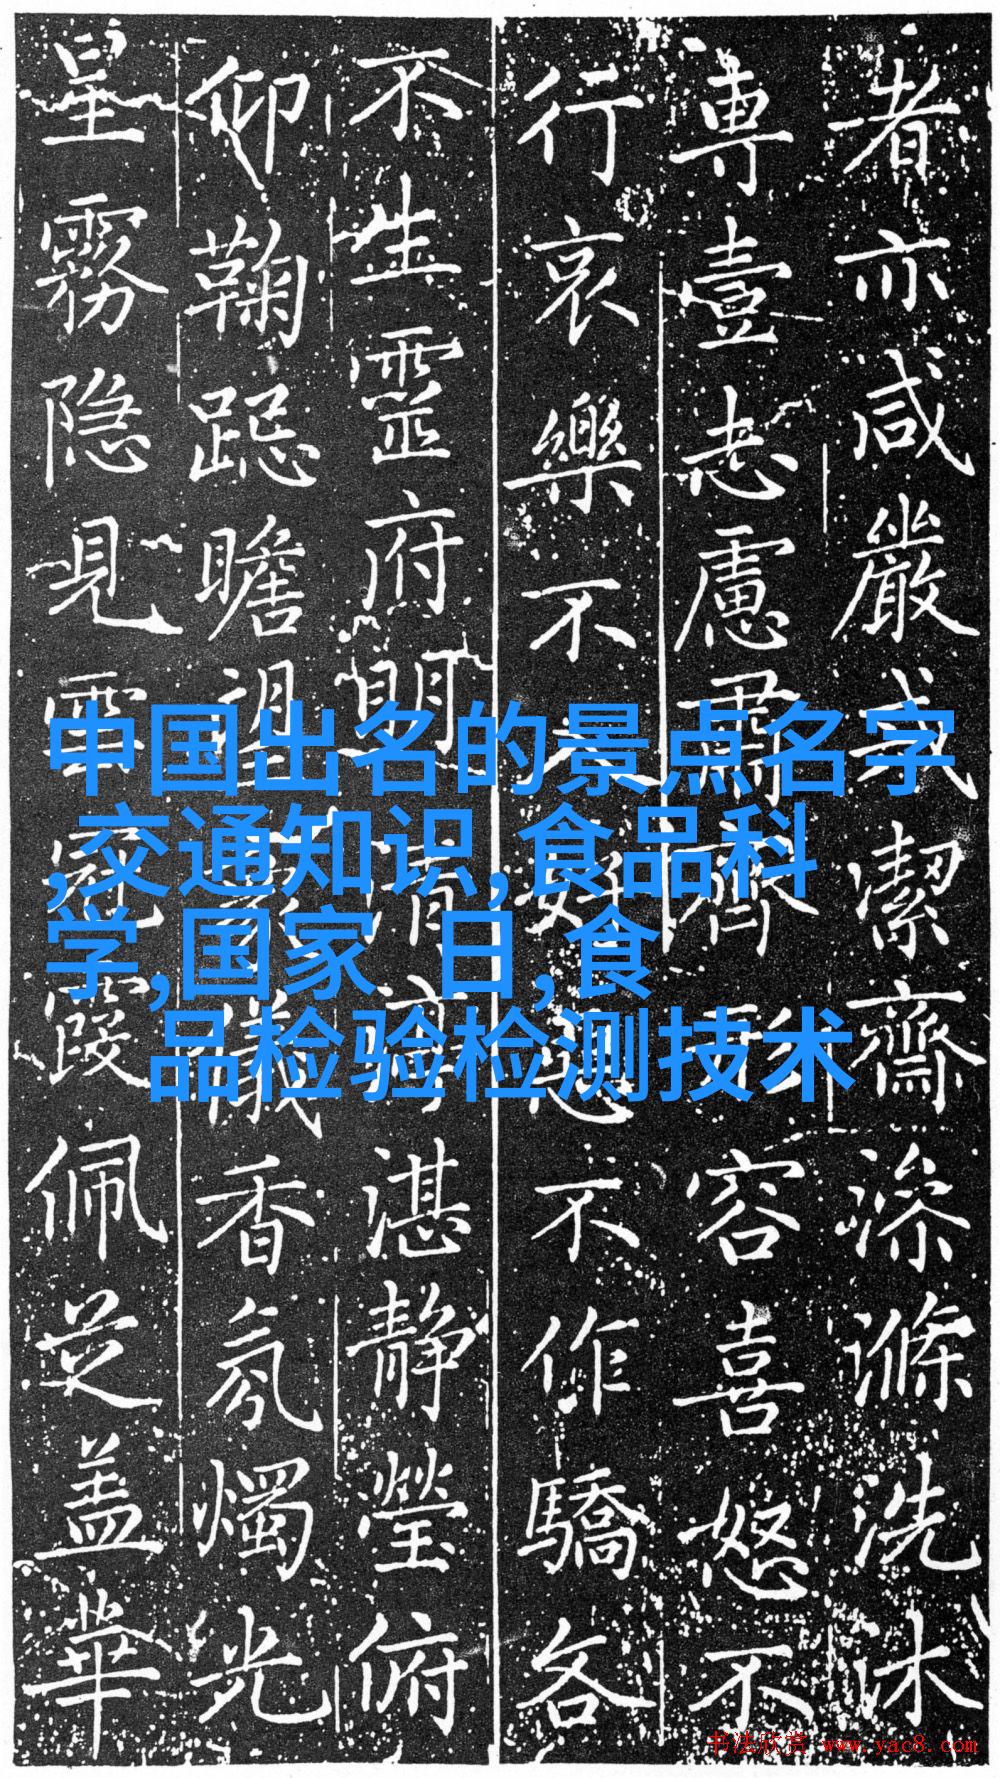 中国出名的景点名字
,交通知识,食品科
学,国家 日,食
品检验检测技术
者亦咸嚴戒潔齋澡滌洗沐
專壹志慮肅齊形容喜怒不
行哀樂不入好惡不作驕各
不生靈府湛靜瑩俯
仰鞠跽瞻望儀香氛燭光
星霧隱見雲冠霞佩芝蓋華
书法欣赏 www.yac8.com